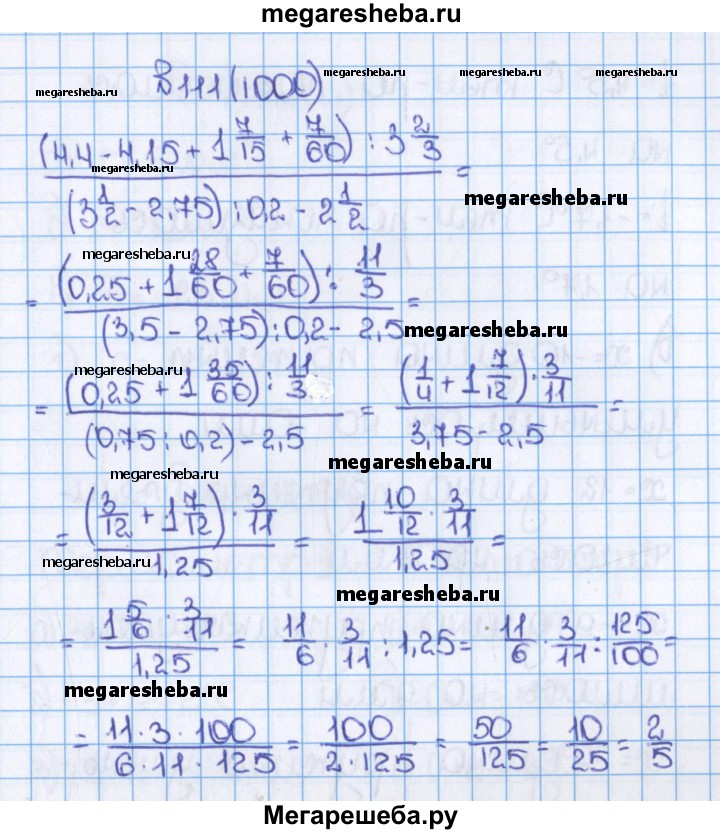 megaresheba.ru
№111(1000) megaresheba.ru megaresheba.ru megaresheba.ru
megaresheba.ru
(4,4 - 4,15 + 1 7/15 + 7/60) : 3 2/3
megaresheba.ru
=
(3 1/2 - 2,75) : 0,2 - 2 1/2
megaresheba.ru
megaresheba.ru
= (0,25 + 1 28/60 + 7/60) : 11/3
(3,5 - 2,75) : 0,2 - 2,5 =
megaresheba.ru
megaresheba.ru
= (0,25 + 1 35/60) : 11/3
(0,75 : 0,2) - 2,5
= (1/4 + 1 7/12) · 3/11
3,75 - 2,5 =
megaresheba.ru
megaresheba.ru
= (3/12 + 1 7/12) · 3/11
1,25
= 1 10/12 · 3/11
1,25 =
megaresheba.ru
megaresheba.ru
= 1 5/6 · 3/11
1,25
= 11/6 · 3/11 : 1,25 = 11/6 · 3/11 : 125/100 =
megaresheba.ru
= 11 · 3 · 100
6 · 11 · 125
= 100
2 · 125
= 50/125 = 10/25 = 2/5
Мегарешеба.ру